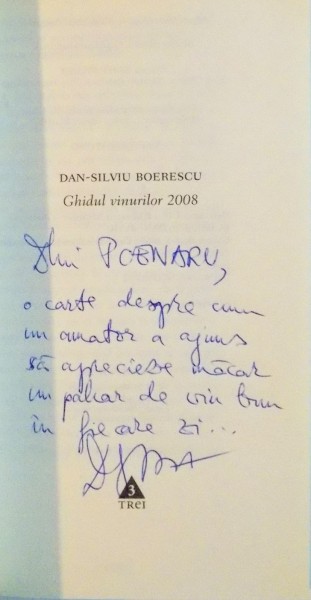 DAN-SILVIU BOERESCU
Ghidul vinurilor 2008
Dlui POENARU,
o carte despre cum
un amator a ajuns
să aprecieze măcar
un pahar de vin bun
în fiecare zi...
3
TREI